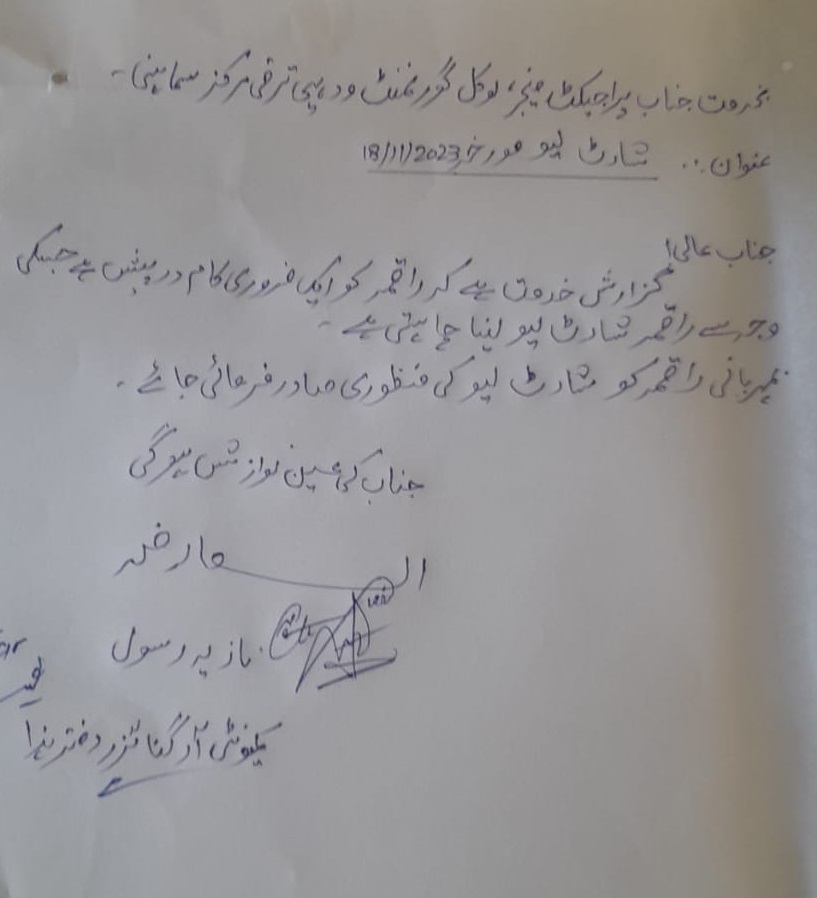 بخدمت جناب پراجیکٹ منیجر، لوکل گورنمنٹ و دیہی ترقی مرکز سماہنی۔
عنوان:۔ شارٹ لیو مورخہ 18/11/2023
جناب عالی!
گزارش خدمت ہے کہ راقمہ کو ایک ضروری کام درپیش ہے جسکی
وجہ سے راقمہ شارٹ لیو لینا چاہتی ہے۔
بمہربانی راقمہ کو شارٹ لیو کی منظوری صادر فرمائی جائے۔
جناب کی عین نوازش ہوگی
العارضہ
نازیہ رسول
کمیونٹی آرگنائزر دفتر ہذا